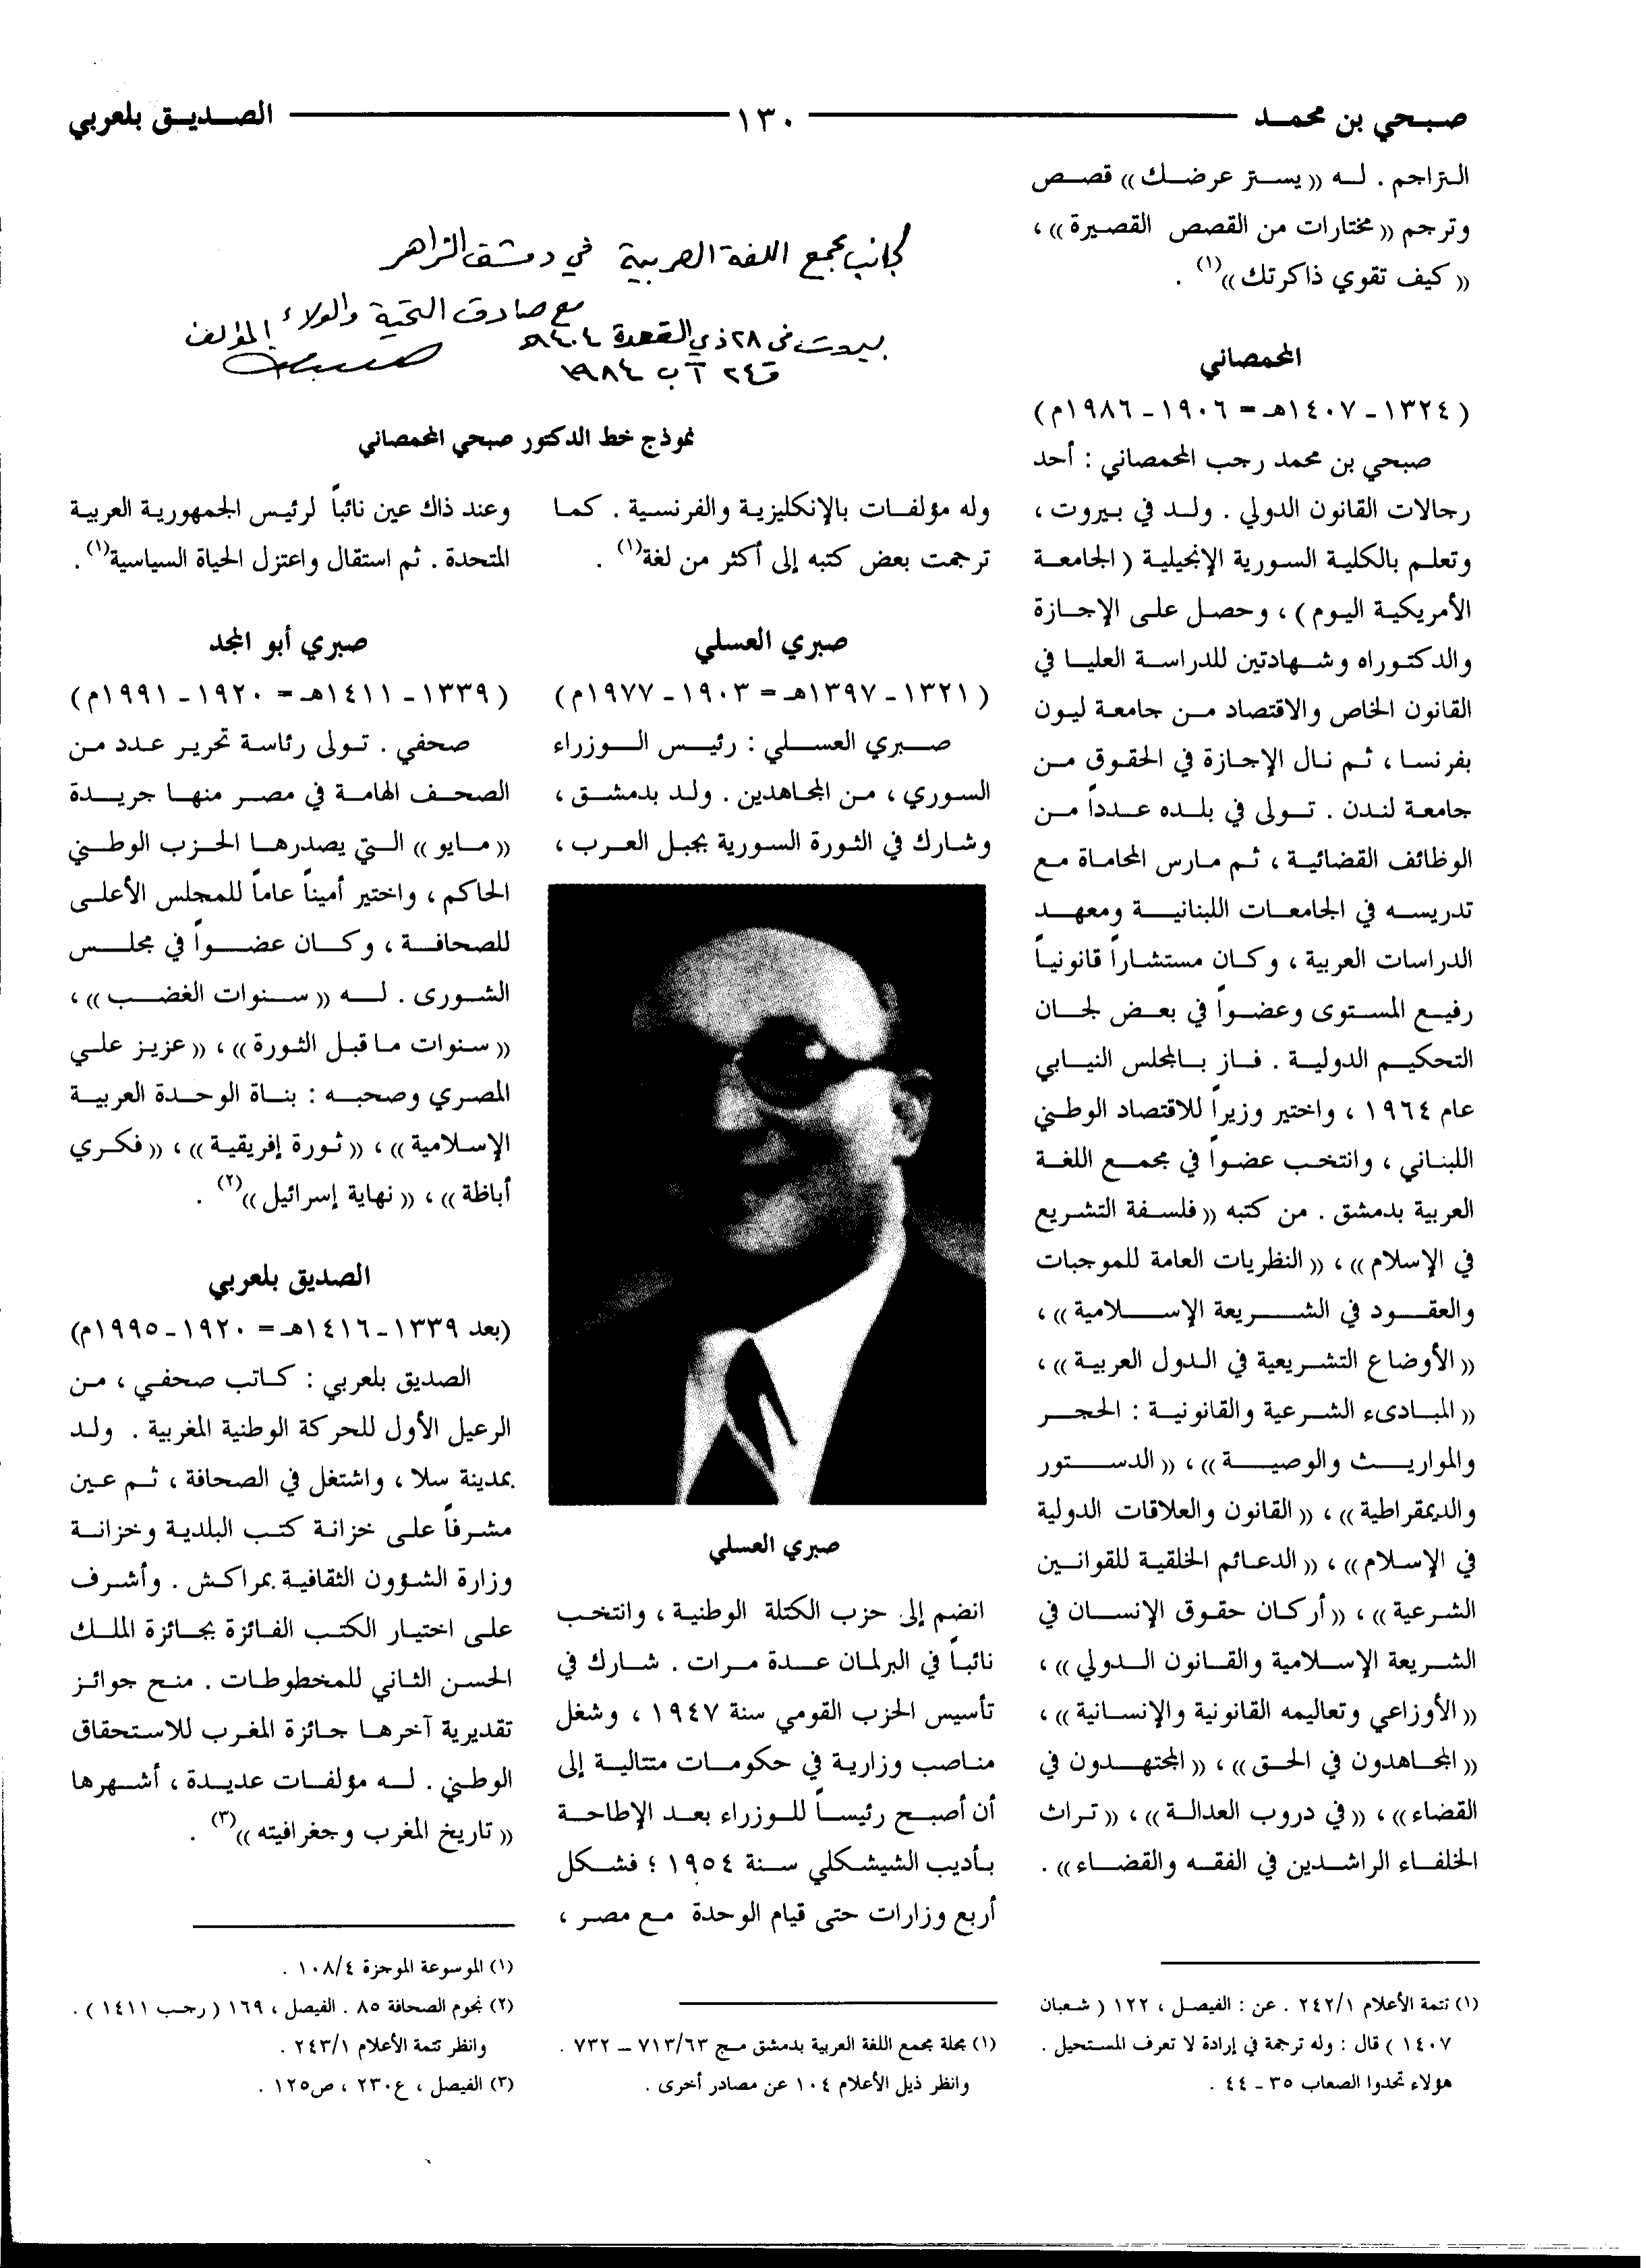 صبحي بن محمد
١٣٠
الصديق بلعربي
التراجم . له « يستر عرضك » قصص
وترجم « مختارات من القصص القصيرة » ،
« كيف تقوي ذاكرتك »(١) .
المحمصاني
( ١٣٢٤ - ١٤٠٧هـ = ١٩٠٦ - ١٩٨٦م )
صبحي بن محمد رجب المحمصاني : أحد
رحالات القانون الدولي . ولد في بيروت ،
وتعلم بالكلية السورية الإنجيلية ( الجامعة
الأمريكية اليوم ) ، وحصل على الإجازة
والدكتوراه وشهادتين للدراسة العليا في
القانون الخاص والاقتصاد من جامعة ليون
بفرنسا ، ثم نال الإجازة في الحقوق من
جامعة لندن . تولى في بلده عدداً من
الوظائف القضائية ، ثم مارس المحاماة مع
تدريسه في الجامعات اللبنانية ومعهد
الدراسات العربية ، وكان مستشاراً قانونياً
رفيع المستوى وعضواً في بعض لجان
التحكيم الدولية . فاز بالمجلس النيابي
عام ١٩٦٤ ، واختير وزيراً للاقتصاد الوطني
اللبناني ، وانتخب عضواً في مجمع اللغة
العربية بدمشق . من كتبه « فلسفة التشريع
في الإسلام » ، « النظريات العامة للموجبات
والعقود في الشريعة الإسلامية » ،
« الأوضاع التشريعية في الدول العربية » ،
« المبادىء الشرعية والقانونية : الحجر
والمواريث والوصية » ، « الدستور
والديمقراطية » ، « القانون والعلاقات الدولية
في الإسلام » ، « الدعائم الخلقية للقوانين
الشرعية » ، « أركان حقوق الإنسان في
الشريعة الإسلامية والقانون الدولي » ،
« الأوزاعي وتعاليمه القانونية والإنسانية » ،
« المجاهدون في الحق » ، « المجتهدون في
القضاء » ، « في دروب العدالة » ، « تراث
الخلفاء الراشدين في الفقه والقضاء » .
(١) تتمة الأعلام ٢٤٢/١ . عن : الفيصل ، ١٢٢ ( شعبان
١٤٠٧ ) قال : وله ترجمة في إرادة لا تعرف المستحيل .
هؤلاء تحدوا الصعاب ٣٥ - ٤٤ .
لجانب مجمع اللغة العربية في دمشق الزاهر
مع صادق التحية والولاء المؤلف
بيروت في ٢٨ ذي القعدة ١٤٠٤هـ
و ٢٤ آب ١٩٨٤
نموذج خط الدكتور صبحي المحمصاني
وله مؤلفات بالإنكليزية والفرنسية . كما
ترجمت بعض كتبه إلى أكثر من لغة(١) .
صبري العسلي
( ١٣٢١ - ١٣٩٧هـ = ١٩٠٣ - ١٩٧٧م )
صبري العسلي : رئيس الوزراء
السوري ، من المجاهدين . ولد بدمشق ،
وشارك في الثورة السورية بجبل العرب ،
صبري العسلي
انضم إلى حزب الكتلة الوطنية ، وانتخب
نائباً في البرلمان عدة مرات . شارك في
تأسيس الحزب القومي سنة ١٩٤٧ ، وشغل
مناصب وزارية في حكومات متتالية إلى
أن أصبح رئيساً للوزراء بعد الإطاحة
بأديب الشيشكلي سنة ١٩٥٤ ؛ فشكل
أربع وزارات حتى قيام الوحدة مع مصر ،
(١) مجلة مجمع اللغة العربية بدمشق مج ٧١٣/٦٣ – ٧٣٢ .
وانظر ذيل الأعلام ١٠٤ عن مصادر أخرى .
وعند ذاك عين نائباً لرئيس الجمهورية العربية
المتحدة . ثم استقال واعتزل الحياة السياسية(١) .
صبري أبو المجد
( ١٣٣٩ - ١٤١١هـ = ١٩٢٠ - ١٩٩١م )
صحفي . تولى رئاسة تحرير عدد من
الصحف الهامة في مصر منها جريدة
« مايو » التي يصدرها الحزب الوطني
الحاكم ، واختير أميناً عاماً للمجلس الأعلى
للصحافة ، وكان عضواً في مجلس
الشورى . له « سنوات الغضب » ،
« سنوات ما قبل الثورة » ، « عزيز علي
المصري وصحبه : بناة الوحدة العربية
الإسلامية » ، « ثورة إفريقية » ، « فكري
أباظة » ، « نهاية إسرائيل »(٢) .
الصديق بلعربي
(بعد ١٣٣٩ - ١٤١٦هـ = ١٩٢٠ - ١٩٩٥م)
الصديق بلعربي : كاتب صحفي ، من
الرعيل الأول للحركة الوطنية المغربية . ولد
بمدينة سلا ، واشتغل في الصحافة ، ثم عين
مشرفاً على خزانة كتب البلدية وخزانة
وزارة الشؤون الثقافية بمراكش . وأشرف
على اختيار الكتب الفائزة بجائزة الملك
الحسن الثاني للمخطوطات . منح جوائز
تقديرية آخرها جائزة المغرب للاستحقاق
الوطني . له مؤلفات عديدة ، أشهرها
« تاريخ المغرب وجغرافيته »(٣) .
(١) الموسوعة الموجزة ١٠٨/٤ .
(٢) نجوم الصحافة ٨٥ . الفيصل ، ١٦٩ ( رجب ١٤١١ ) .
وانظر تتمة الأعلام ٢٤٣/١ .
(٣) الفيصل ، ع ٢٣٠ ، ص ١٢٥ .